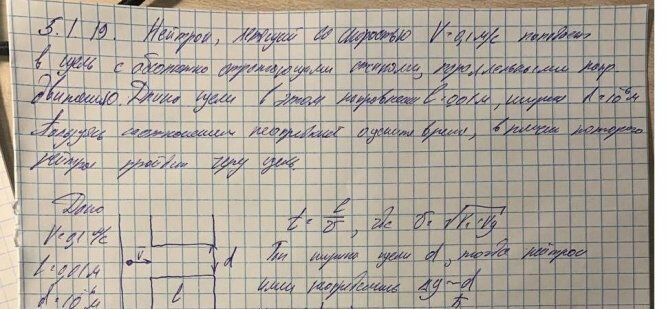 5.1.19. Нейтрон, летящий со скоростью V=0,1 м/с попадает
в щель с абсолютно отражающими стенками, параллельными напр.
движению. Длина щели в этом направлении l=0,01 м, ширина d=10⁻⁶ м
Пользуясь соотношением неопред. оцените время, в течении которого
нейтрон пройдет через щель.
Дано
V=0,1 м/с
l=0,01 м
d=10⁻⁶ м
V
l
d
t = l/v, где v =
При ширине щели d, тогда нейтрон
имел неопределенность Δy~d
ħ